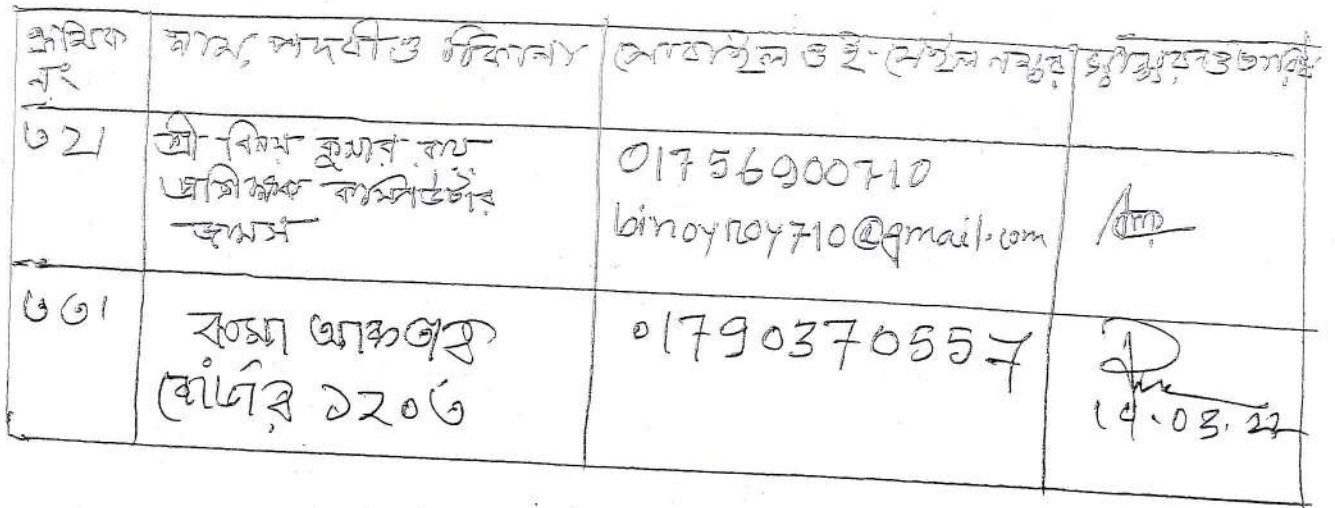 ক্রমিক নং
নাম, পদবী ও ঠিকানা
মোবাইল ও ই-মেইল নম্বর
স্বাক্ষর ও তারিখ
৩২।
শ্রী বিনয় কুমার রায়
প্রশিক্ষক কম্পিউটার
01756900710
binoyroy710@gmail.com
৩৩।
আকতার
১২০৩
01790370557
03.22